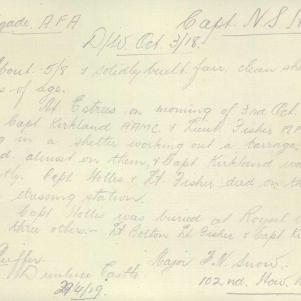 gade. A.F.A Capt. N.S.
D/W Oct. 3/18.
About 5/8 & solidly built fair, clean sh
s of age.
At Estrees on morning of 3rd Oct.
Capt Kirkland AAMC. & Lieut Fisher
g in a shelter working out a barrage,
d almost on them, & Capt Kirkland wa
tly. Capt Holles & Lt. Fisher died on th
dressing station.
Capt Holles was buried at
three others - Lt Lt Fisher & Capt K
Major F.W. Snow.
Castle 102nd. How.
22/4/19.